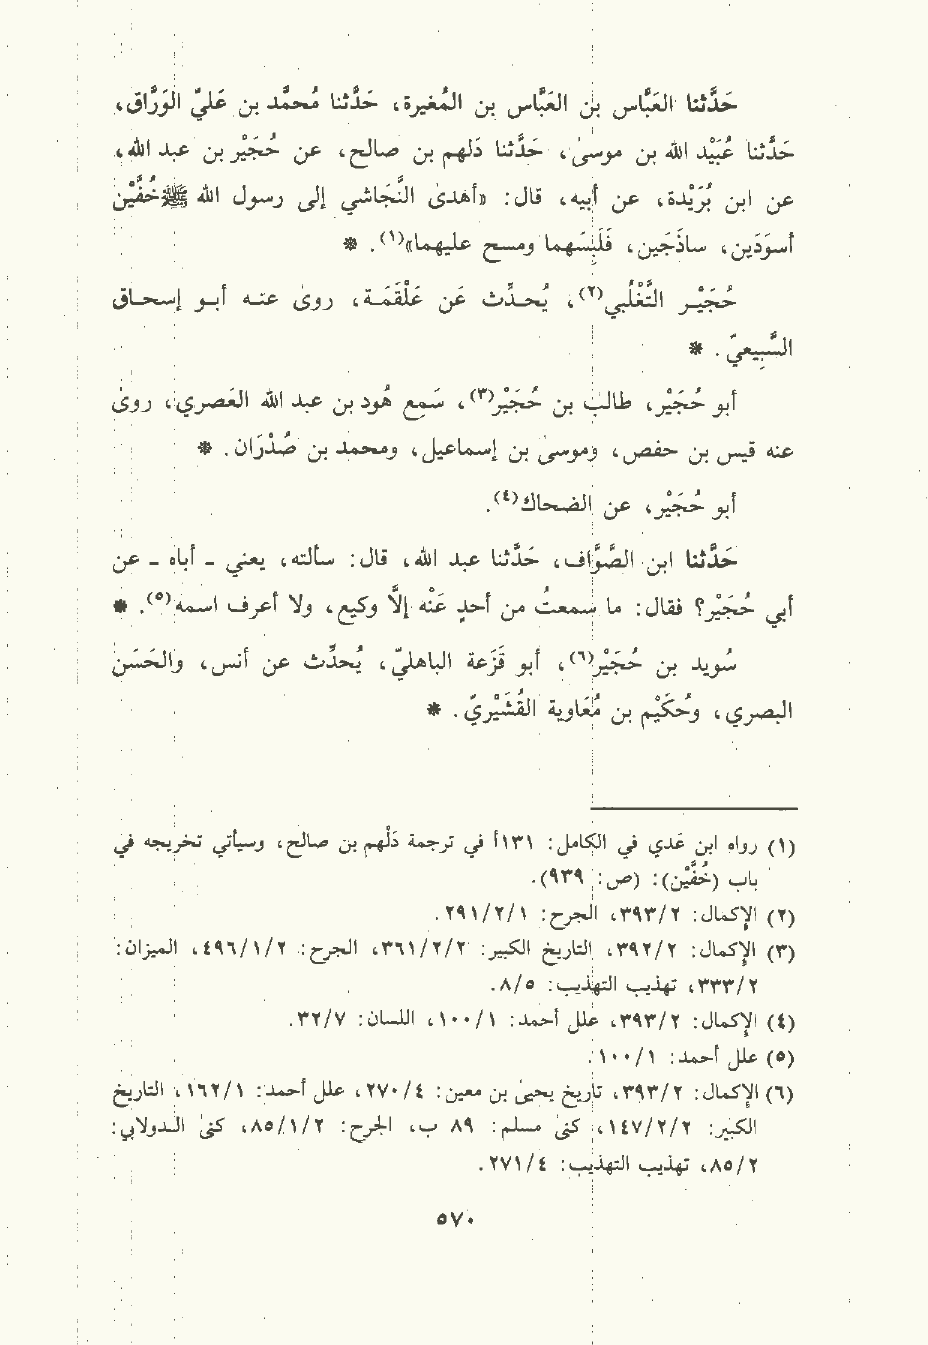 حَدَّثنا العَبَّاس بن العَبَّاس بن المُغيرة، حَدَّثنا مُحمَّد بن عَليّ الوَرَّاق،
حَدَّثنا عُبَيْد الله بن موسىٰ، حَدَّثنا دَلهم بن صالح، عن حُجَيْر بن عبد الله،
عن ابن بُرَيْدة، عن أبيه، قال: «أهدىٰ النَّجَاشي إلى رسول الله ﷺ خُفَّيْن
أسوَدَين، ساذَجَين، فَلَبِسَهما ومسح عليهما»(١). *
حُجَيْـر التَّغْلُبي(٢)، يُحـدِّث عَن عَلْقَمَـة، روىٰ عنـه أبـو إسحـاق
السَّبِيعيّ. *
أبو حُجَيْر، طالب بن حُجَيْر(٣)، سَمِع هُود بن عبد الله العَصري، روىٰ
عنه قيس بن حفص، وموسىٰ بن إسماعيل، ومحمد بن صُدْرَان. *
أبو حُجَيْر، عن الضحاك(٤).
حَدَّثنا ابن الصَّوَّاف، حَدَّثنا عبد الله، قال: سألته، يعني ـ أباه ـ عن
أبي حُجَيْر؟ فقال: ما سمعتُ من أحدٍ عَنْه إلَّا وكيع، ولا أعرف اسمه(٥). *
سُويد بن حُجَيْر(٦)، أبو قَزَعة الباهليّ، يُحدِّث عن أنس، والحَسَن
البصري، وحُكَيْم بن مُعَاوية القُشَيْريّ. *
(١) رواه ابن عَدي في الكامل: ١٣١أ في ترجمة دَلْهم بن صالح، وسيأتي تخريجه في
باب (خُفَّيْن): (ص: ٩٣٩).
(٢) الإكمال: ٣٩٣/٢، الجرح: ٢٩١/٢/١.
(٣) الإكمال: ٣٩٢/٢، التاريخ الكبير: ٣٦١/٢/٢، الجرح: ٤٩٦/١/٢، الميزان:
٣٣٣/٢، تهذيب التهذيب: ٨/٥.
(٤) الإكمال: ٣٩٣/٢، علل أحمد: ١٠٠/١، اللسان: ٣٢/٧.
(٥) علل أحمد: ١٠٠/١.
(٦) الإكمال: ٣٩٣/٢، تاريخ يحيىٰ بن معين: ٢٧٠/٤، علل أحمد: ١٦٢/١، التاريخ
الكبير: ١٤٧/٢/٢، كنىٰ مسلم: ٨٩ ب، الجرح: ٨٥/١/٢، كنىٰ الـدولابي:
٨٥/٢، تهذيب التهذيب: ٢٧١/٤.
٥٧٠